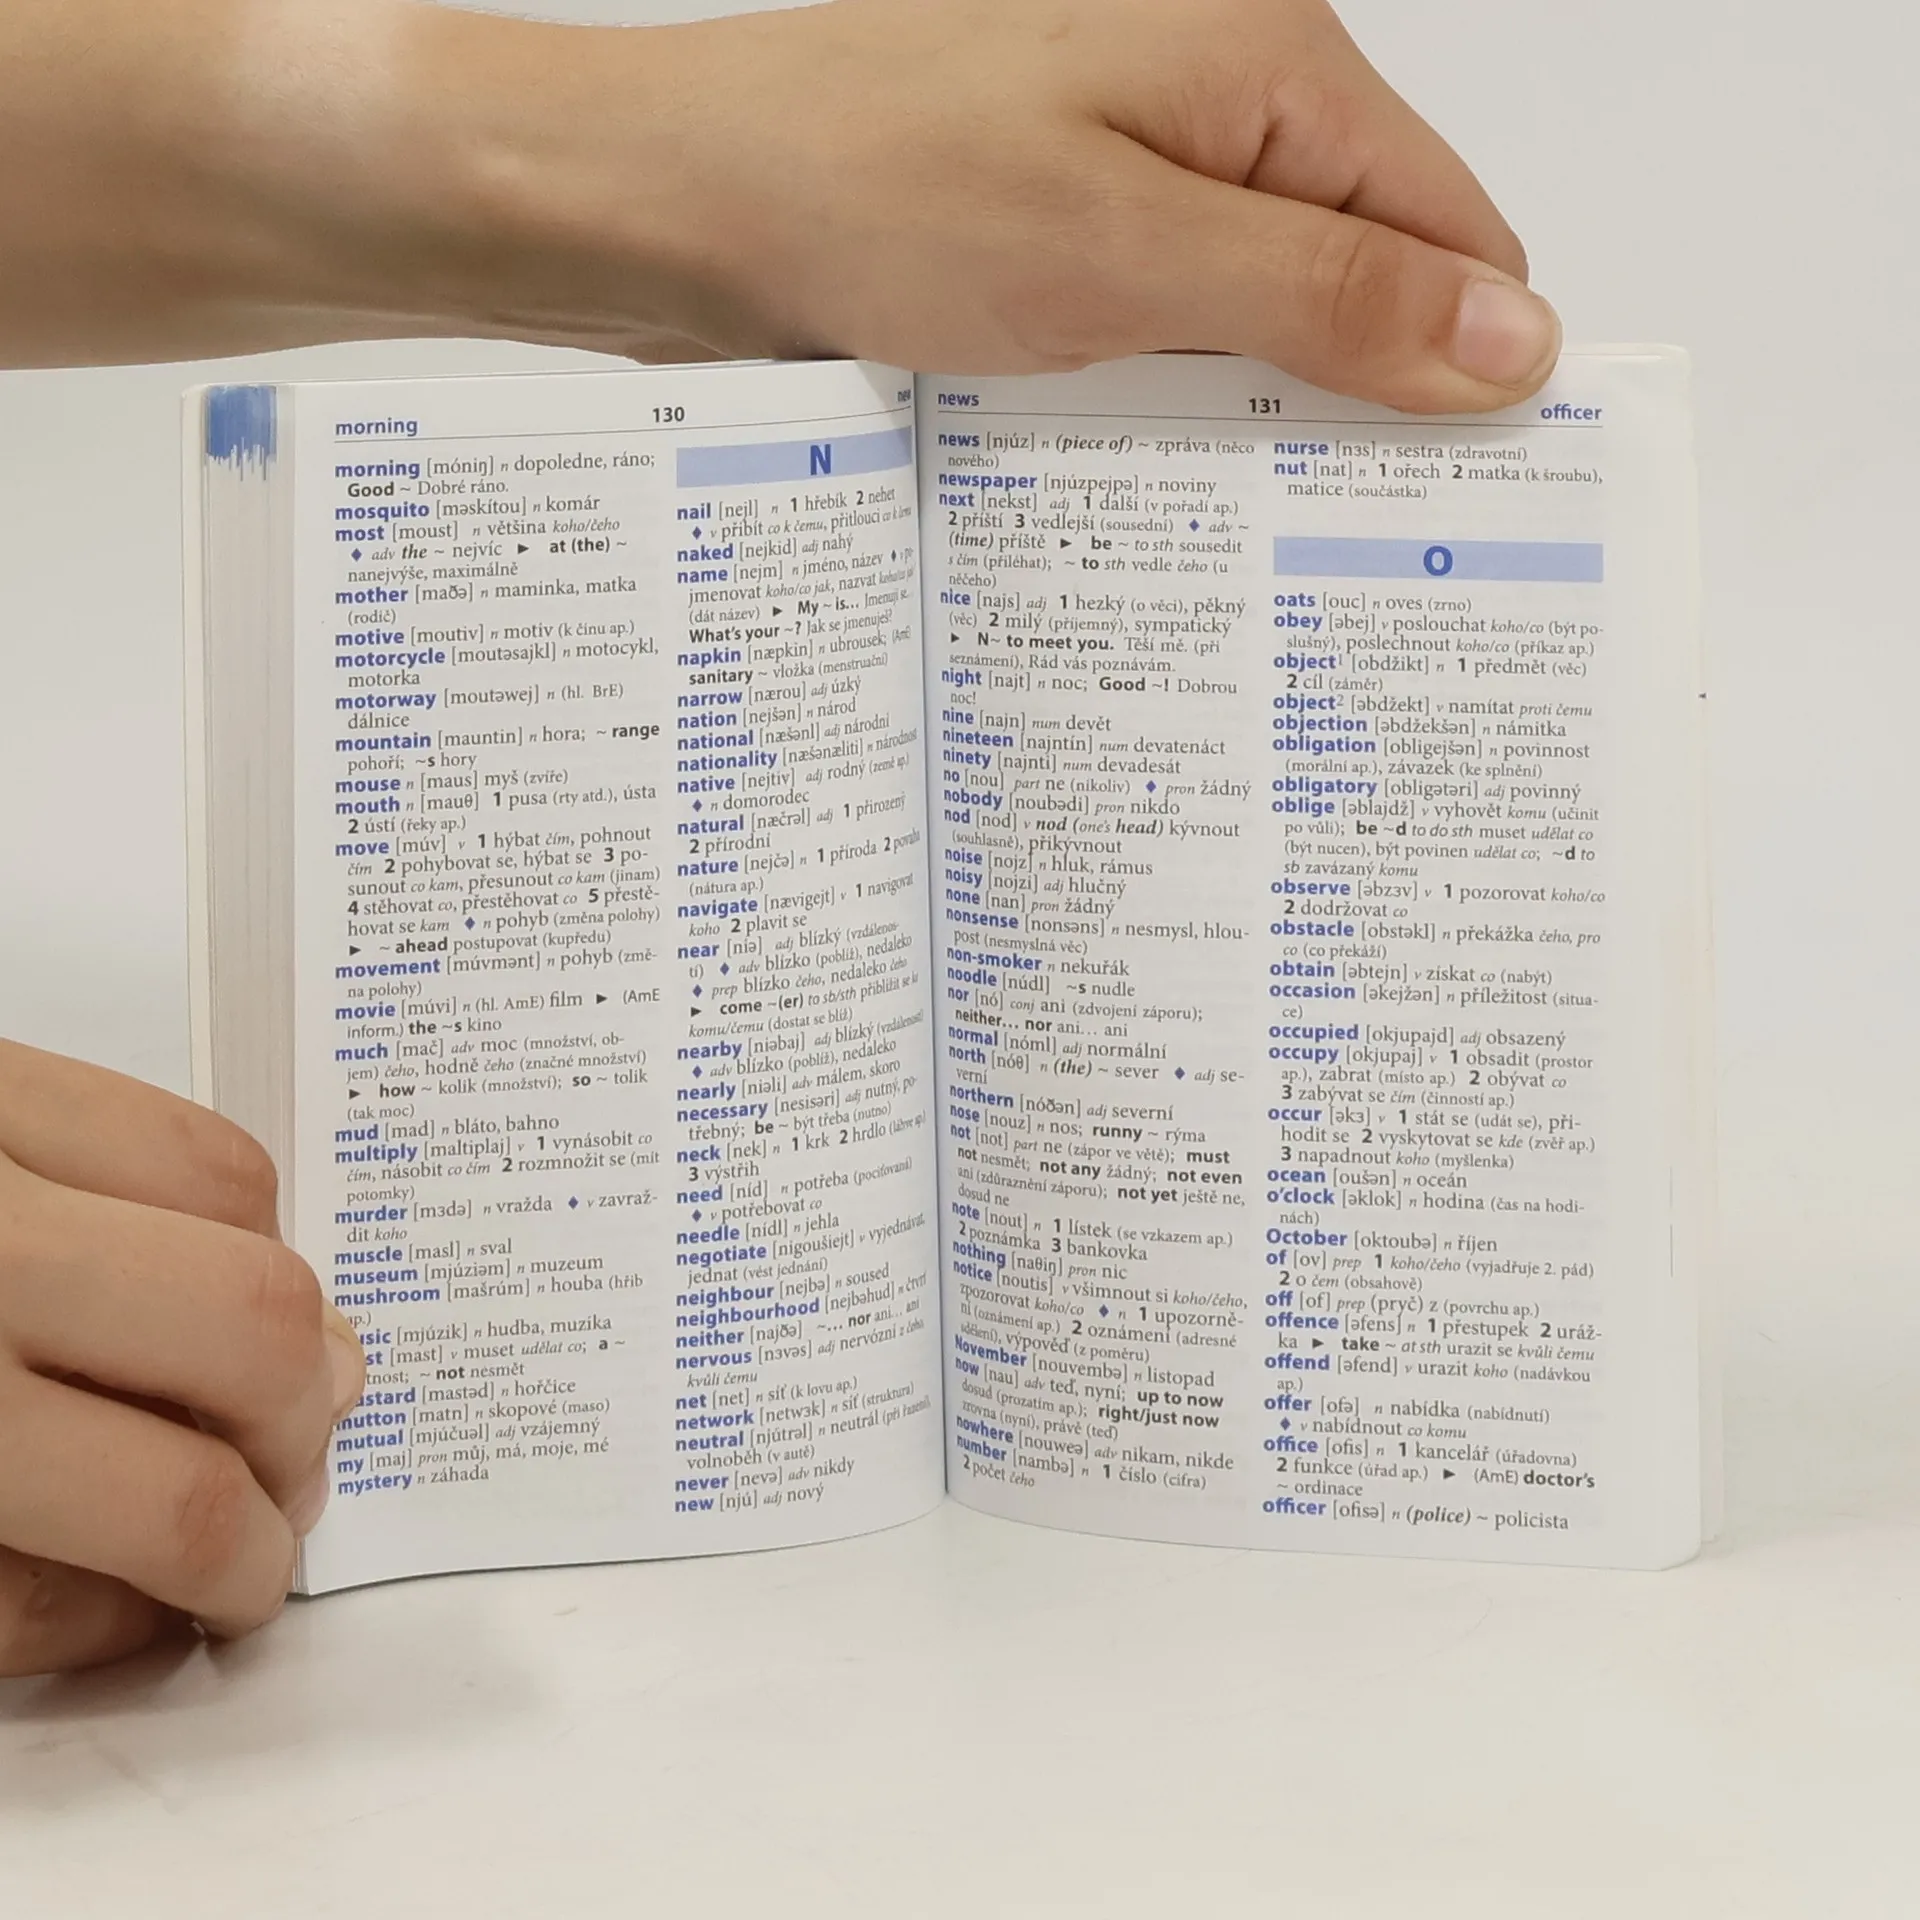 morning 130 new
morning [móniŋ] n dopoledne, ráno;
Good ~ Dobré ráno.
mosquito [məskítou] n komár
most [moust] n většina koho/čeho
♦ adv the ~ nejvíc ► at (the) ~
nanejvýše, maximálně
mother [maðə] n maminka, matka
(rodič)
motive [moutiv] n motiv (k činu ap.)
motorcycle [moutəsajkl] n motocykl,
motorka
motorway [moutəwej] n (hl. BrE)
dálnice
mountain [mauntin] n hora; ~ range
pohoří; ~s hory
mouse n [maus] myš (zvíře)
mouth n [mauθ] 1 pusa (rty atd.), ústa
2 ústí (řeky ap.)
move [múv] v 1 hýbat čím, pohnout
čím 2 pohybovat se, hýbat se 3 po-
sunout co kam, přesunout co kam (jinam)
4 stěhovat co, přestěhovat co 5 přestě-
hovat se kam ♦ n pohyb (změna polohy)
► ~ ahead postupovat (kupředu)
movement [múvmənt] n pohyb (změ-
na polohy)
movie [múvi] n (hl. AmE) film ► (AmE
inform.) the ~s kino
much [mač] adv moc (množství, ob-
jem) čeho, hodně čeho (značné množství)
► how ~ kolik (množství); so ~ tolik
(tak moc)
mud [mad] n bláto, bahno
multiply [maltiplaj] v 1 vynásobit co
čím, násobit co čím 2 rozmnožit se (mít
potomky)
murder [mɜdə] n vražda ♦ v zavraž-
dit koho
muscle [masl] n sval
museum [mjúziəm] n muzeum
mushroom [mašrúm] n houba (hřib
ap.)
usic [mjúzik] n hudba, muzika
st [mast] v muset udělat co; a ~
tnost; ~ not nesmět
ustard [mastəd] n hořčice
mutton [matn] n skopové (maso)
mutual [mjúčuəl] adj vzájemný
my [maj] pron můj, má, moje, mé
mystery n záhada
N
nail [nejl] n 1 hřebík 2 nehet
♦ v přibít co k čemu, přitlouci co k čemu
naked [nejkid] adj nahý
name [nejm] n jméno, název ♦ v po-
jmenovat koho/co jak, nazvat koho/co jak
(dát název) ► My ~ is... Jmenuji se...
What's your ~? Jak se jmenuješ?
napkin [næpkin] n ubrousek; (AmE)
sanitary ~ vložka (menstruační)
narrow [nærou] adj úzký
nation [nejšən] n národ
national [næšənl] adj národní
nationality [næšənæliti] n národnost
native [nejtiv] adj rodný (země ap.)
♦ n domorodec
natural [næčrəl] adj 1 přirozený
2 přírodní
nature [nejčə] n 1 příroda 2 povaha
(nátura ap.)
navigate [nævigejt] v 1 navigovat
koho 2 plavit se
near [niə] adj blízký (vzdálenos-
tí) ♦ adv blízko (poblíž), nedaleko
♦ prep blízko čeho, nedaleko čeho
► come ~(er) to sb/sth přiblížit se ke
komu/čemu (dostat se blíž)
nearby [niəbaj] adj blízký (vzdáleností)
♦ adv blízko (poblíž), nedaleko
nearly [niəli] adv málem, skoro
necessary [nesisəri] adj nutný, po-
třebný; be ~ být třeba (nutno)
neck [nek] n 1 krk 2 hrdlo (láhve ap.)
3 výstřih
need [níd] n potřeba (pociťovaná)
♦ v potřebovat co
needle [nídl] n jehla
negotiate [nigoušiejt] v vyjednávat,
jednat (vést jednání)
neighbour [nejbə] n soused
neighbourhood [nejbəhud] n čtvrť
neither [najðə] ~... nor ani... ani
nervous [nɜvəs] adj nervózní z čeho,
kvůli čemu
net [net] n síť (k lovu ap.)
network [netwɜk] n síť (struktura)
neutral [njútrəl] n neutrál (při řazení),
volnoběh (v autě)
never [nevə] adv nikdy
new [njú] adj nový
news 131 officer
news [njúz] n (piece of) ~ zpráva (něco
nového)
newspaper [njúzpejpə] n noviny
next [nekst] adj 1 další (v pořadí ap.)
2 příští 3 vedlejší (sousední) ♦ adv ~
(time) příště ► be ~ to sth sousedit
s čím (přiléhat); ~ to sth vedle čeho (u
něčeho)
nice [najs] adj 1 hezký (o věci), pěkný
(věc) 2 milý (příjemný), sympatický
► N~ to meet you. Těší mě. (při
seznámení), Rád vás poznávám.
night [najt] n noc; Good ~! Dobrou
noc!
nine [najn] num devět
nineteen [najntín] num devatenáct
ninety [najnti] num devadesát
no [nou] part ne (nikoliv) ♦ pron žádný
nobody [noubədi] pron nikdo
nod [nod] v nod (one's head) kývnout
(souhlasně), přikývnout
noise [nojz] n hluk, rámus
noisy [nojzi] adj hlučný
none [nan] pron žádný
nonsense [nonsəns] n nesmysl, hlou-
post (nesmyslná věc)
non-smoker n nekuřák
noodle [núdl] ~s nudle
nor [nó] conj ani (zdvojení záporu);
neither... nor ani... ani
normal [nóml] adj normální
north [nóθ] n (the) ~ sever ♦ adj se-
verní
northern [nóðən] adj severní
nose [nouz] n nos; runny ~ rýma
not [not] part ne (zápor ve větě); must
not nesmět; not any žádný; not even
ani (zdůraznění záporu); not yet ještě ne,
dosud ne
note [nout] n 1 lístek (se vzkazem ap.)
2 poznámka 3 bankovka
nothing [naθiŋ] pron nic
notice [noutis] v všimnout si koho/čeho,
zpozorovat koho/co ♦ n 1 upozorně-
ní (oznámení ap.) 2 oznámení (adresné
sdělení), výpověď (z poměru)
November [nouvembə] n listopad
now [nau] adv teď, nyní; up to now
dosud (prozatím ap.); right/just now
zrovna (nyní), právě (teď)
nowhere [nouweə] adv nikam, nikde
number [nambə] n 1 číslo (cifra)
2 počet čeho
nurse [nɜs] n sestra (zdravotní)
nut [nat] n 1 ořech 2 matka (k šroubu),
matice (součástka)
O
oats [ouc] n oves (zrno)
obey [əbej] v poslouchat koho/co (být po-
slušný), poslechnout koho/co (příkaz ap.)
object¹ [obdžikt] n 1 předmět (věc)
2 cíl (záměr)
object² [əbdžekt] v namítat proti čemu
objection [əbdžekšən] n námitka
obligation [obligejšən] n povinnost
(morální ap.), závazek (ke splnění)
obligatory [obligətəri] adj povinný
oblige [əblajdž] v vyhovět komu (učinit
po vůli); be ~d to do sth muset udělat co
(být nucen), být povinen udělat co; ~d to
sb zavázaný komu
observe [əbzɜv] v 1 pozorovat koho/co
2 dodržovat co
obstacle [obstəkl] n překážka čeho, pro
co (co překáží)
obtain [əbtejn] v získat co (nabýt)
occasion [əkejžən] n příležitost (situa-
ce)
occupied [okjupajd] adj obsazený
occupy [okjupaj] v 1 obsadit (prostor
ap.), zabrat (místo ap.) 2 obývat co
3 zabývat se čím (činností ap.)
occur [əkɜ] v 1 stát se (udát se), při-
hodit se 2 vyskytovat se kde (zvěř ap.)
3 napadnout koho (myšlenka)
ocean [oušən] n oceán
o'clock [əklok] n hodina (čas na hodi-
nách)
October [oktoubə] n říjen
of [ov] prep 1 koho/čeho (vyjadřuje 2. pád)
2 o čem (obsahově)
off [of] prep (pryč) z (povrchu ap.)
offence [əfens] n 1 přestupek 2 uráž-
ka ► take ~ at sth urazit se kvůli čemu
offend [əfend] v urazit koho (nadávkou
ap.)
offer [ofə] n nabídka (nabídnutí)
♦ v nabídnout co komu
office [ofis] n 1 kancelář (úřadovna)
2 funkce (úřad ap.) ► (AmE) doctor's
~ ordinace
officer [ofisə] n (police) ~ policista